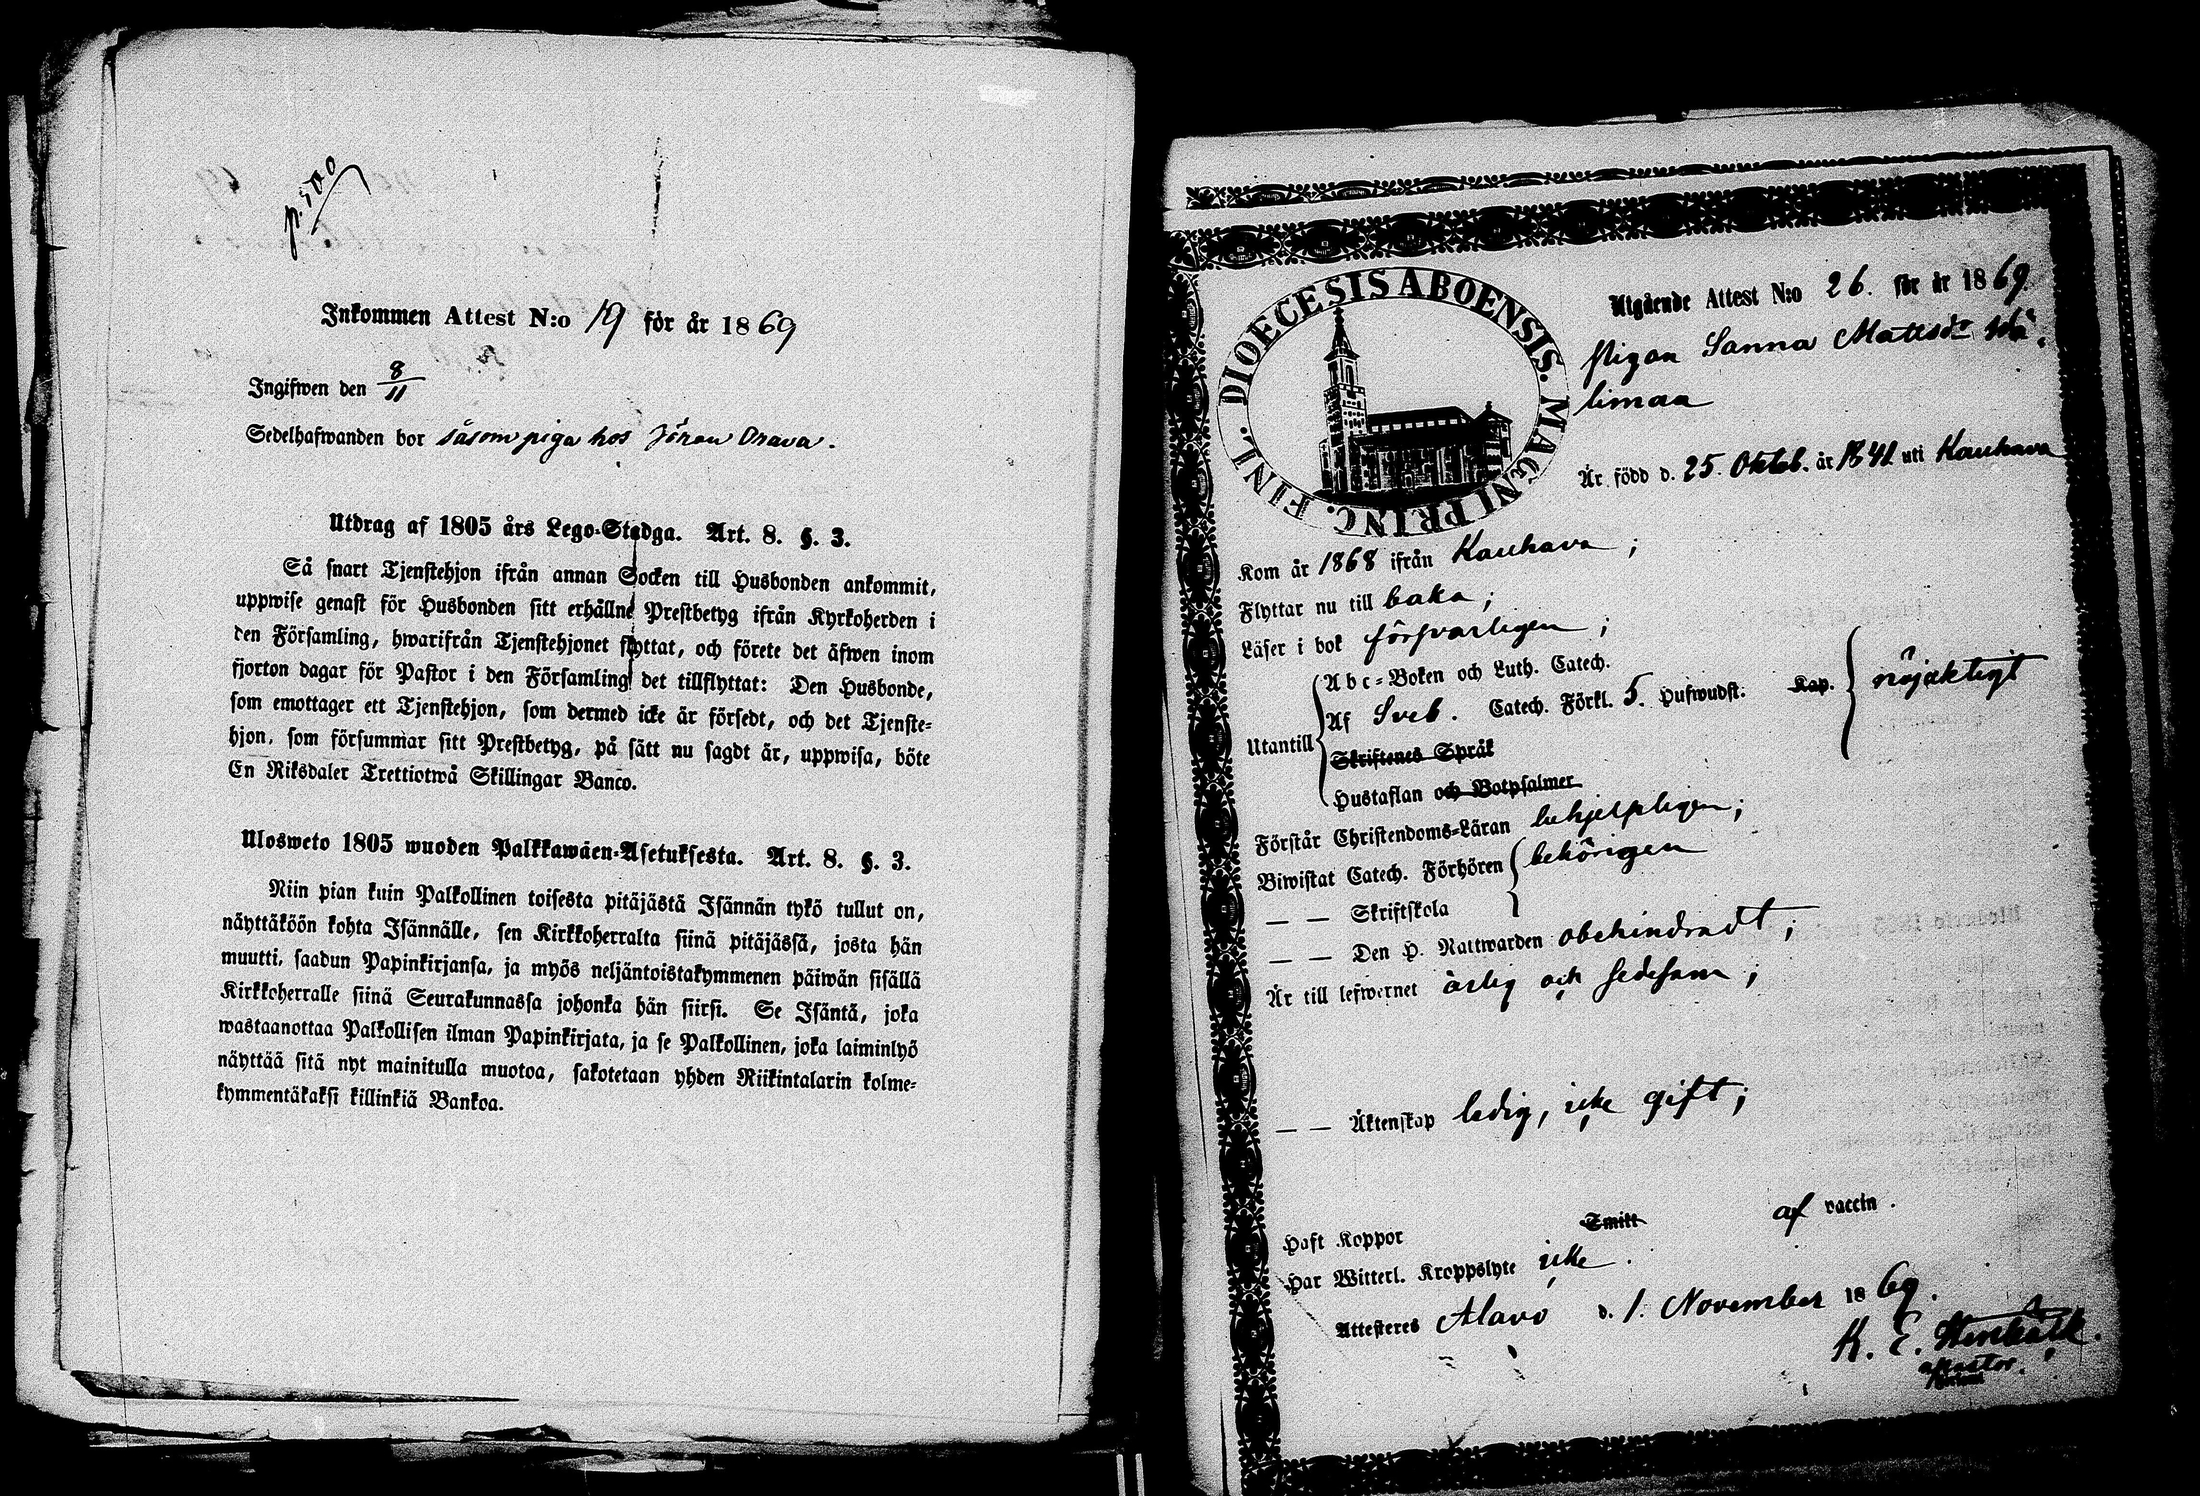 p. 500
Inkommen Attest N:o 19 för år 1869
Ingifwen den 8/11
Sedelhafwanden bor såsom piga hos Jöran Orava.
Utdrag af 1805 års Lego-Stadga. Art. 8. §. 3.
Så snart Tjenstehjon ifrån annan Socken till Husbonden ankommit,
uppwise genast för Husbonden sitt erhållne Prestbetyg ifrån Kyrkoherden i
den Församling, hwarifrån Tjenstehjonet flyttat, och förete det äfwen inom
fjorton dagar för Pastor i den Församling det tillflyttat: Den Husbonde,
som emottager ett Tjenstehjon, som dermed icke är försedt, och det Tjenste-
hjon, som försummar sitt Prestbetyg, på sätt nu sagdt är, uppwisa, böte
En Riksdaler Trettiotwå Skillingar Banco.
Ulosweto 1805 wuoden Palkkawäen-Asetuksesta. Art. 8. §. 3.
Niin pian kuin Palkollinen toisesta pitäjästä Isännän tykö tullut on,
näyttäköön kohta Isännälle, sen Kirkkoherralta siinä pitäjässä, josta hän
muutti, saadun Papinkirjansa, ja myös neljäntoistakymmenen päiwän sisällä
Kirkkoherralle siinä Seurakunnassa johonka hän siirsi. Se Isäntä, joka
wastaanottaa Palkollisen ilman Papinkirjata, ja se Palkollinen, joka laiminlyö
näyttää sitä nyt mainitulla muotoa, sakotetaan yhden Riikintalarin kolme-
kymmentäkaksi killinkiä Bankoa.
DIOECESIS ABOENSIS. MAGNI PRINC. FINL.
Utgående Attest N:o 26. för år 1869.
Pigan Sanna Mattsdr
limaa
Är född d. 25. Oktob. år 1841 uti Kauhava
Kom år 1868 ifrån Kauhava;
Flyttar nu till baka;
Läser i bok försvarligen;
Abc-Boken och Luth. Catech.
Utantill Af Sveb. Catech. Förkl. 5. Hufwudst. Kap. nöjaktigt
Skriftenes Språk
Hustaflan och Botpsalmer
Förstår Christendoms-Läran behjelpligen;
Biwistat Catech. Förhören behörigen
— — Skriftskola
— — Den H. Nattwarden obehindradt;
Är till lefwernet ärlig och sedesam;
— — Äktenskap ledig, icke gift;
Haft Koppor Smitt af vaccin.
Har Witterl. Kroppslyte icke.
Attesteres Alavo d. 1. November 1869.
K. E. Stenbäck.
Pastor.